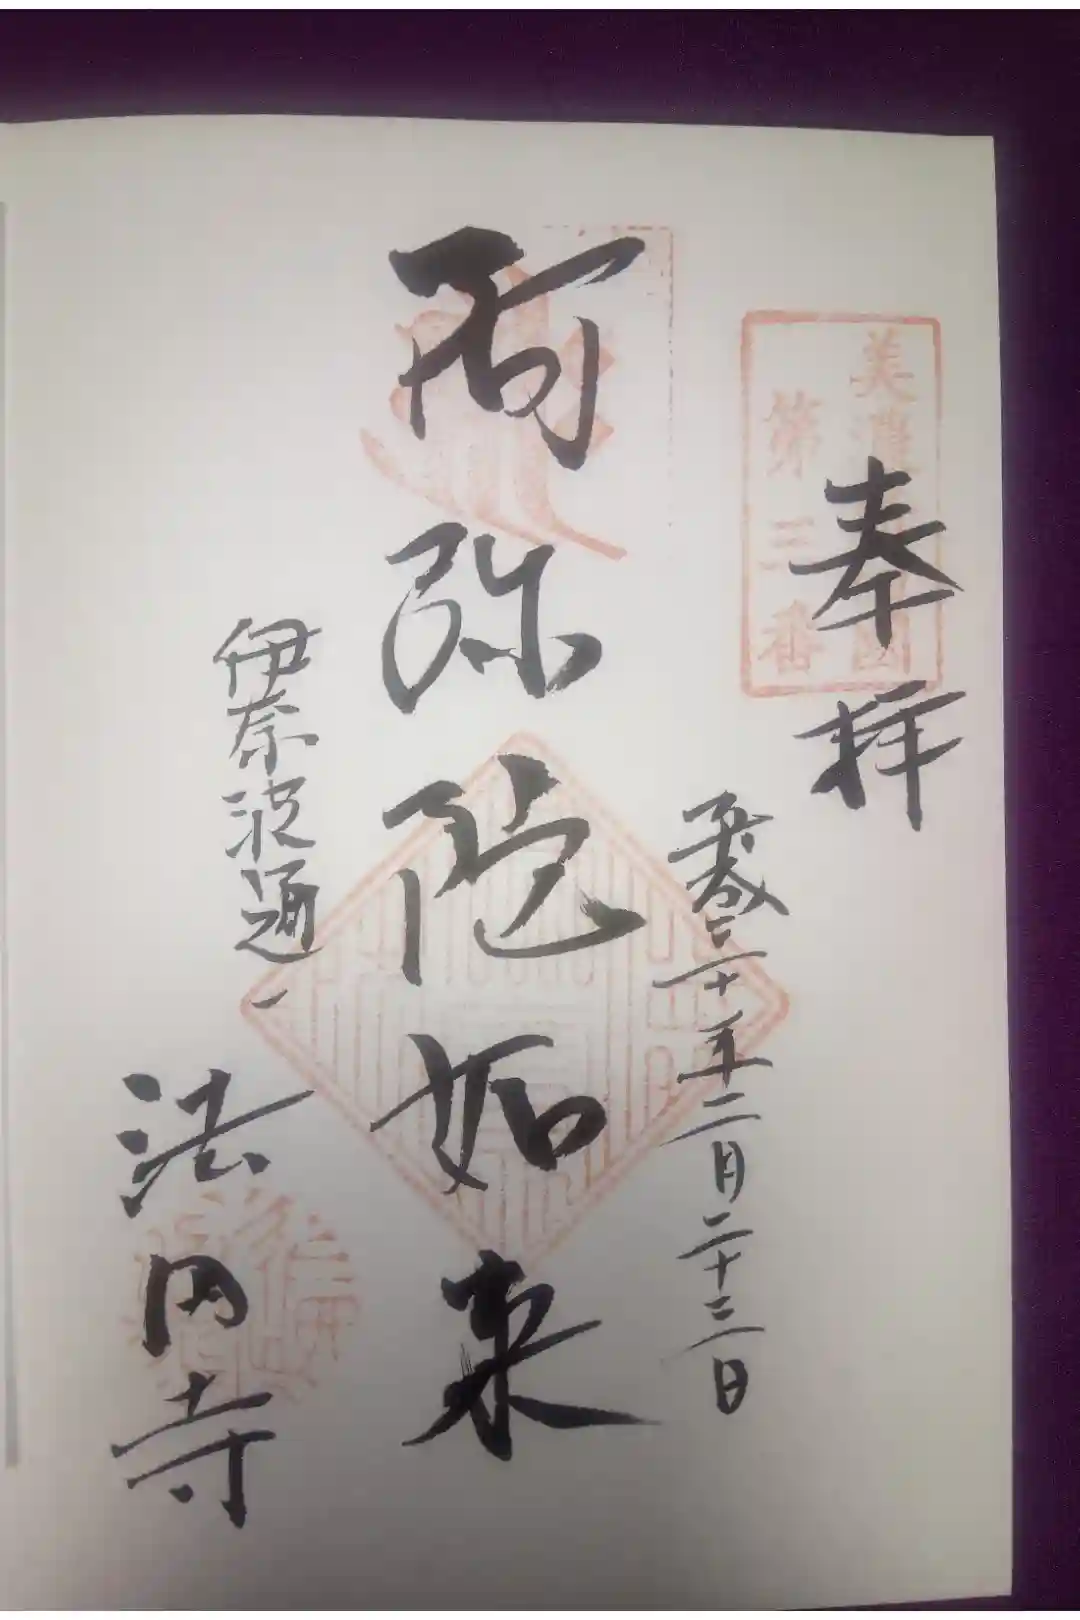 奉拝
美濃国
第三番
平成三十年二月二十三日
阿弥陀如来
伊奈波通一
法円寺